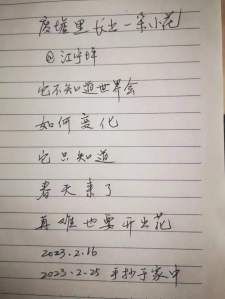 废墟里长出一朵小花
@江宇坤
它不知道世界会
如何变化
它只知道
春天来了
再难也要开出花
2023.2.16
2023.2.25 手抄于家中